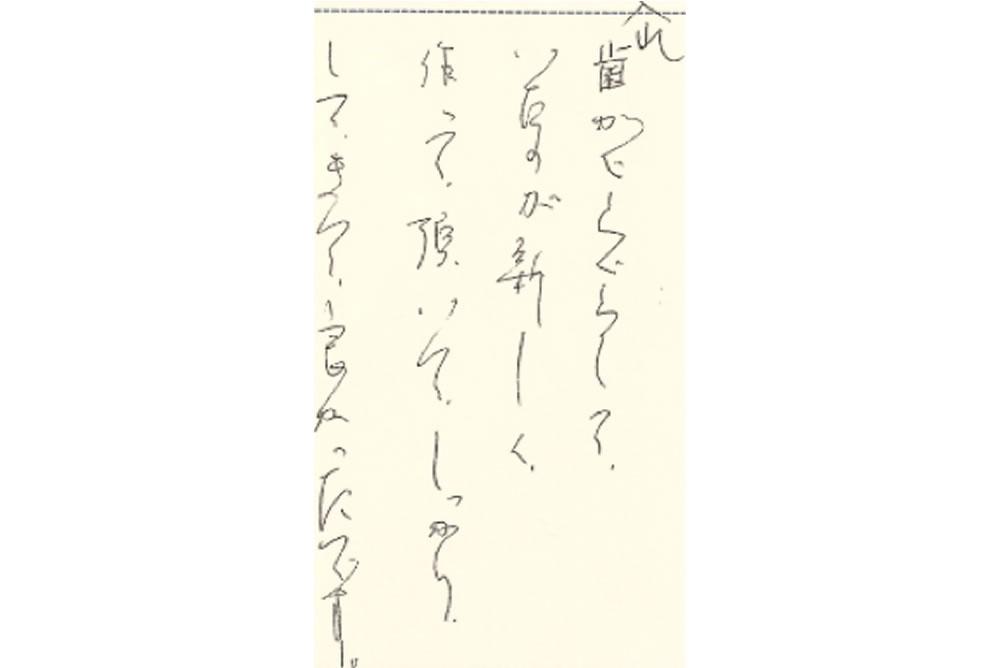 入れ歯がぐらぐらして、
いたのが新しく、
作って、頂いて、しっかり、
して、きて、良かったです。